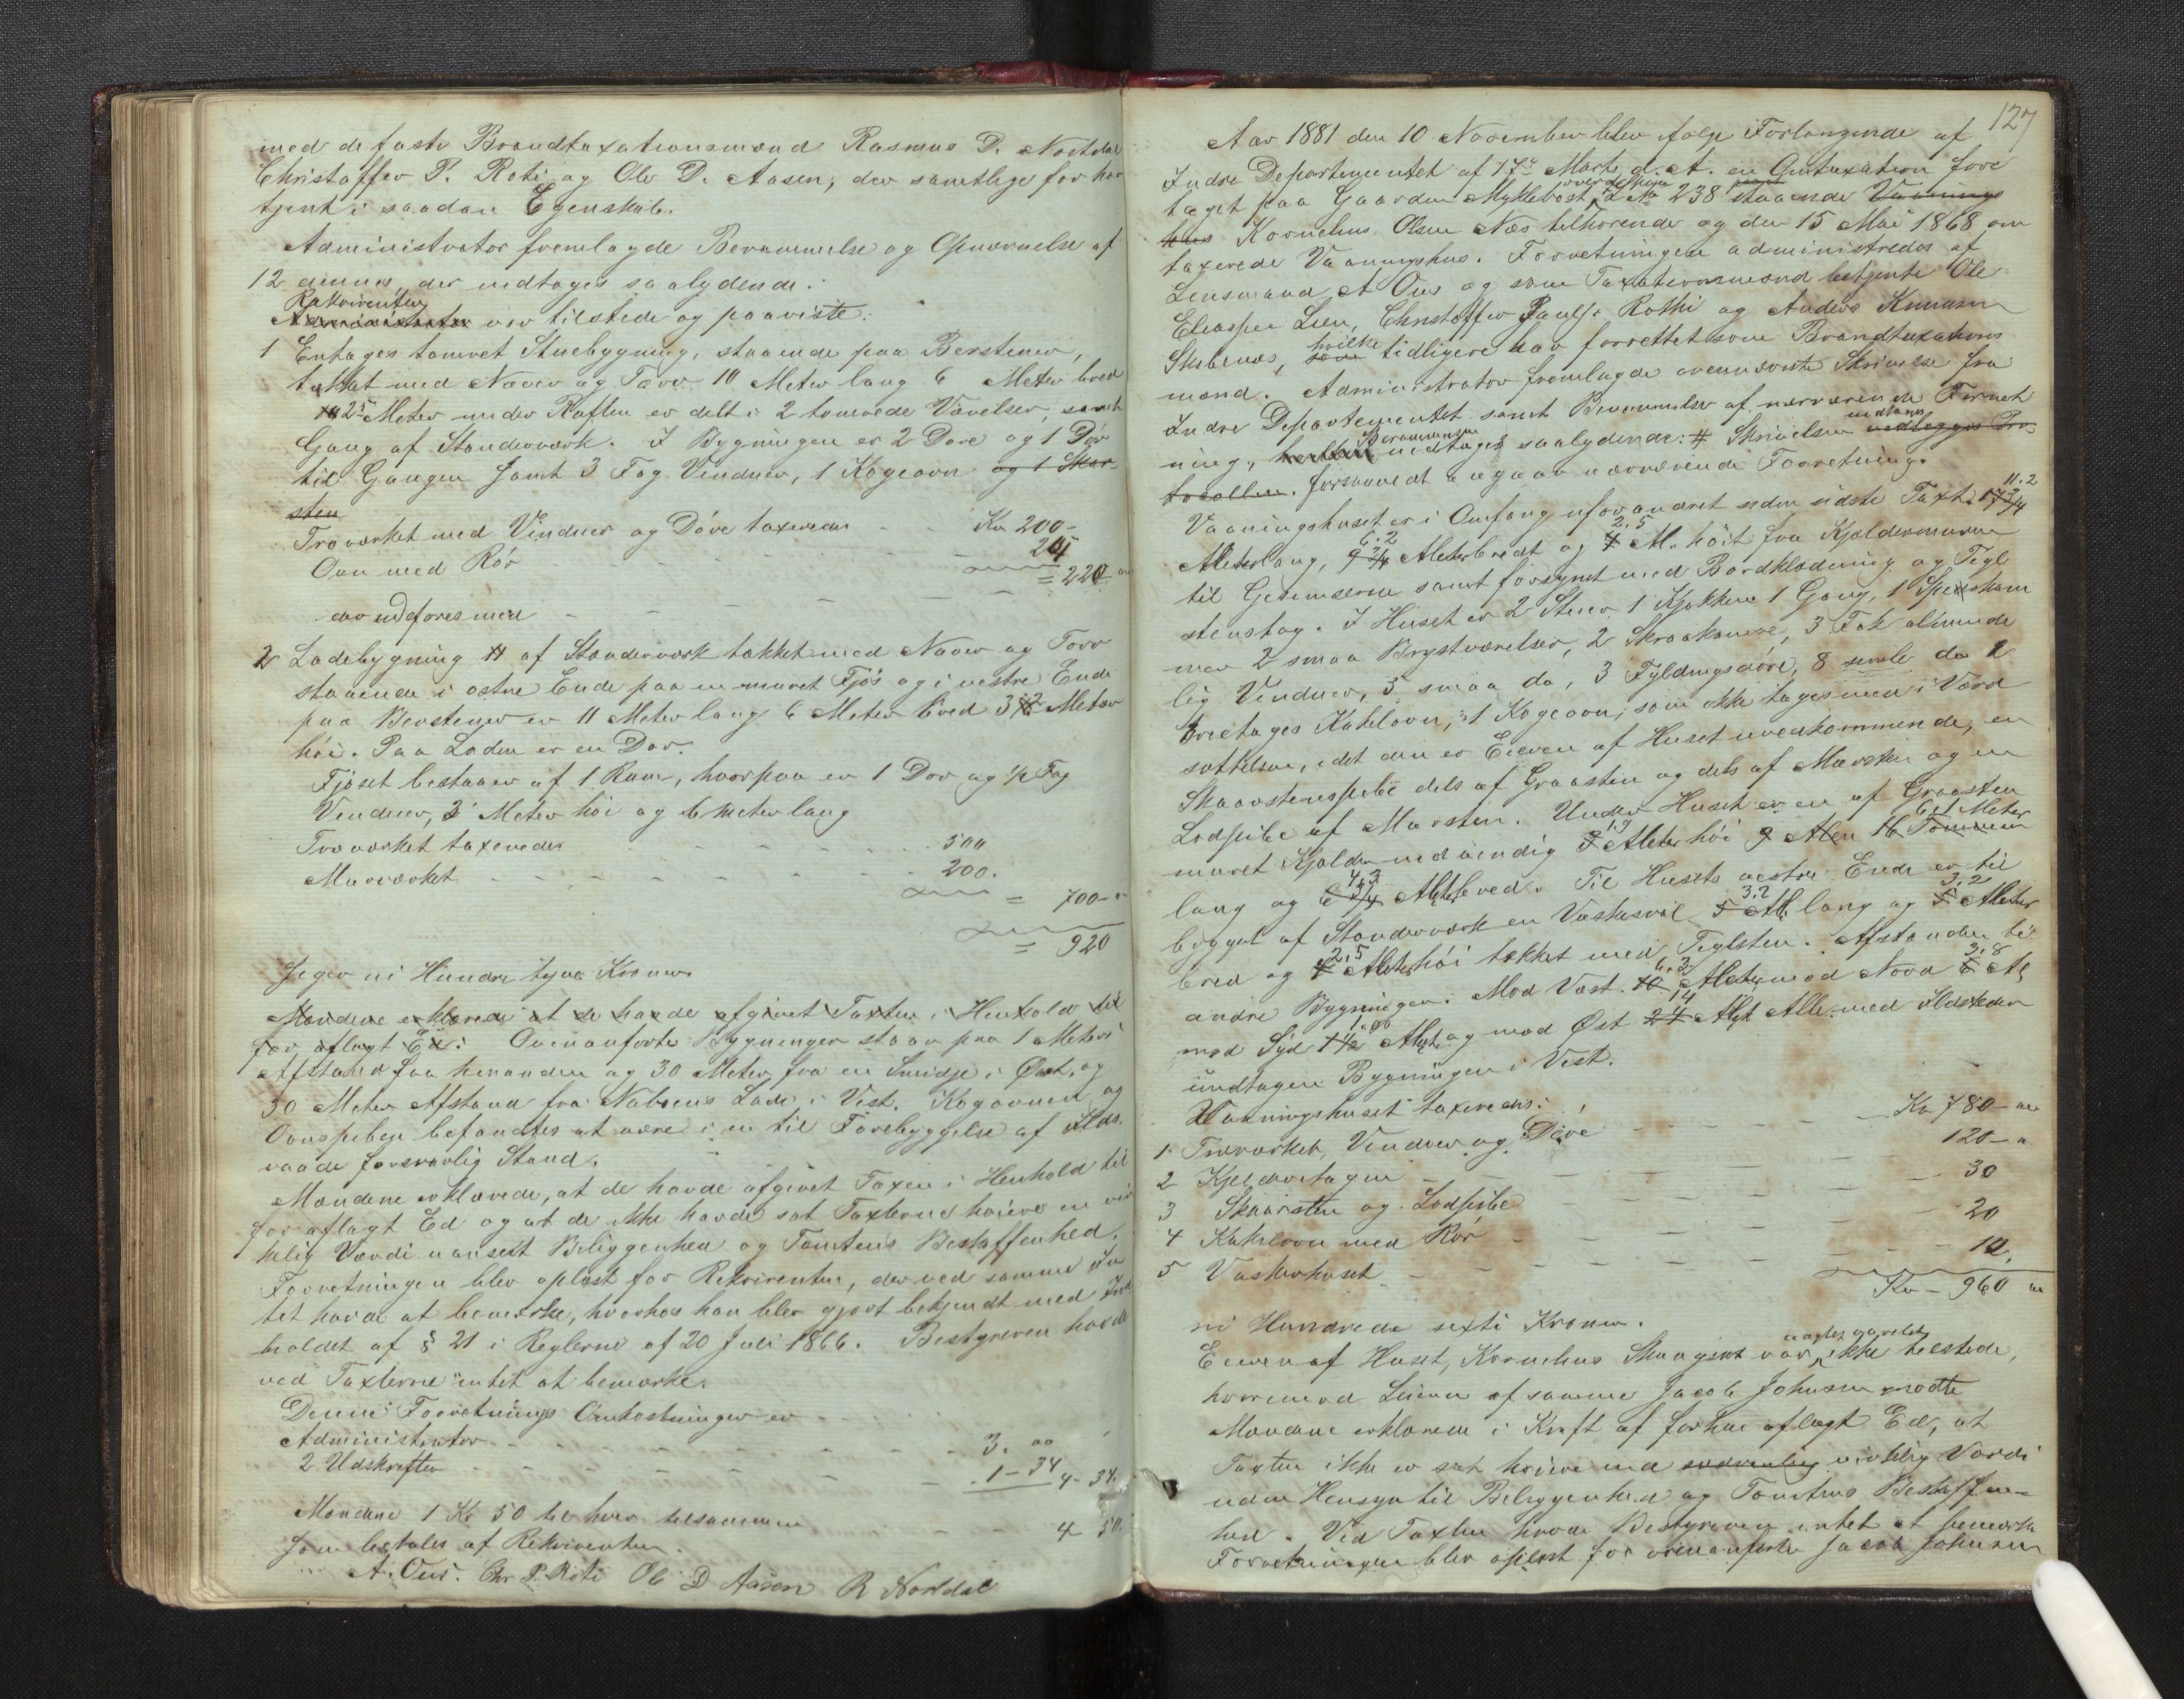 med de faste Brandtaxationsmænd Rasmus D. Nordal
Christoffer P. Roti og Ole D. Aasen, der samtlige før har
tjent i saadan Egenskab.
Administrator fremlagde Berammelse og Opnævnelse af
12 dennes, der indtages saalydende:
Rekvirenten
Administrator var tilstede og paaviste.
1 Entages tømret Stuebygning, staaende paa Berstener,
tækket med Næver og Tørv 10 Meter lang 6 Meter bred
2⁵ Meter under Raften er delt i 2 tømrede Værelser, samt
Gang af Standerværk. I Bygningen er 2 Døre og 1 Dør
til Gangen samt 3 Fag Vinduer, 1 Kogeovn og 1 Skor-
sten
Træværket med Vinduer og Døre taxeredes - - Kr 200-
Ovn med Rør - - - 20
= 220
der udføres med
2 Ladebygning af Standerværk tækket med Næver og Torv
staaende i østre Ende paa en muret Fjøs og i vestre Ende
paa Berstener er 11 Meter lang 6 Meter bred 3,2 Meter
høi. Paa Laden er en Dør.
Fjøset bestaaer af 1 Rum, hvorpaa er 1 Dør og ½ Fag
Vinduer, 2 Meter høi og 6 Meter lang
Træværket taxeredes - - - 500
Murværket - - - 200.
= 700-
= 920
Siger ni Hundre tyve Kroner
Mændene erklærede at de havde afgivet Taxten i Henhold til
før aflagt Ed. Ovenanførte Bygninger staar paa 1 Meters
Afstand fra hinanden og 30 Meter fra en Smidje i Øst, og
30 Meter Afstand fra Naboens Lade i Vest. Kogovnen og
Ovnspiben befandtes at være i en til Forebyggelse af Ilds-
vaade forsvarlig Stand.
Mændene erklærede, at de havde afgivet Taxen i Henhold til
før aflagt Ed og at de ikke havde sat Taxterne høiere en vir
kelig Værdi uanseet Beliggenhed og Tomtens Bestaffenhed.
Forretningen blev oplæst for Rekvirenten, der ved samme In
tet havde at bemærke, hvorhos han blev gjort bekjendt med Ind
holdet af § 21 i Reglerne af 20 Juli 1866. Bestyreren havde
ved Taxterne intet at bemærke.
Denne Forretnings Omkostninger er
Administrator - - - 3. 00
2 Udskrifter - - - 1-34 4-34.
Mændene 1 Kr 50 til hver tilsammen - - 4 50.
som betales af Rekvirenten.
A. Ous. Chr P. Roti Ole D Aasen R Nordal
127
Aar 1881 den 10 November blev ifølge Forlangende af
Indre Departementet af 17de Marts d. A. en Omtaxation fore
taget paa Gaarden Myklebost L No 238 staaende Vaanings
hus Kornelius Olsen Næs tilhørende og den 15 Mai 1868 om
taxerede Vaaningshus. Forretningen administredes af
Lensmand A Ous og som Taxationsmænd betjente Ole
Eliassen Lien, Christoffer Paulss Rothi og Anders Knudsen
hvilke
Skibenes, som tidligere har forrettet som Brandtaxations
mænd. Administrator fremlagde ovennævnte Skrivelse fra
Indre Departementet samt Berammelse af nærværende Forret
ning, Berammelsen indtages saalydende: # Skrivelsen vedlægges Pro
tocollen. forsaavidt angaar nærværende Forretning.
Vaaningshuset er i Omfang uforandret siden sidste Taxt. 11.2
Meter lang, 6.2 Meter bredt og 2,5 M. høit fra Kjældermuren
til Gesimserne samt forsynet med Bordklædning og Tegl
stenstag. I Huset er 2 Stuer 1 Kjøkken 1 Gang, 1 Speiskam
mer 2 smaa Brystværelser, 2 Skraakamre, 3 Fak alminde
lig Vinduer, 3 smaa do, 3 Fyldingsdøre, 8 simle do 1
treetages Kakelovn, 1 Kogeovn, som ikke tages med i Værd
sættelsen, idet den er Eieren af Huset uvedkommende, en
Skaarstenspibe dels af Graasten og dels af Mursten og en
Lodpibe af Mursten. Under Huset er en af Graasten
muret Kjælder indvendig 1,9 Meter høi 6,1 Meter
lang og 4,3 Meter bred. Til Husets vestre Ende er til
bygget af Standerværk en Vaskesvil 3.2 M lang og 3,2 Meter
bred og 2,5 Meter høi tækket med Teglsten. Afstanden til
andre Bygninger: Mod Vest. 6,3 Meter, mod Nord 3,8 M,
mod Syd Met og mod Øst 14 Met Alle med Ildsteder
undtagen Bygningen i Vest.
Vaaningshuset taxeredes:
1 Træværket, Vinduer og Døre - - Kr 780-
2 Kjelderetagen - - 120-
3 Skaarsten og Lodpibe - - 30
4 Kakelovn med Rør - - 20
5 Vaskerhuset - - 10.
Kr- 960
ni Hundrede sexti Kroner.
Eieren af Huset, Kornelius var ikke tilstede,
hvorimod Leieren af samme Jacob Johnsen mødte
Mændene erklærede i Kraft af forhen aflagt Ed, at
Taxten ikke er sat høiere end virkelig Værdi
uden Hensyn til Beliggenhed og Tomtens Beskaffen-
hed. Ved Taxten havde Bestyreren intet at bemærke
Forretningen blev oplæst for ovenanførte Jacob Johnsen